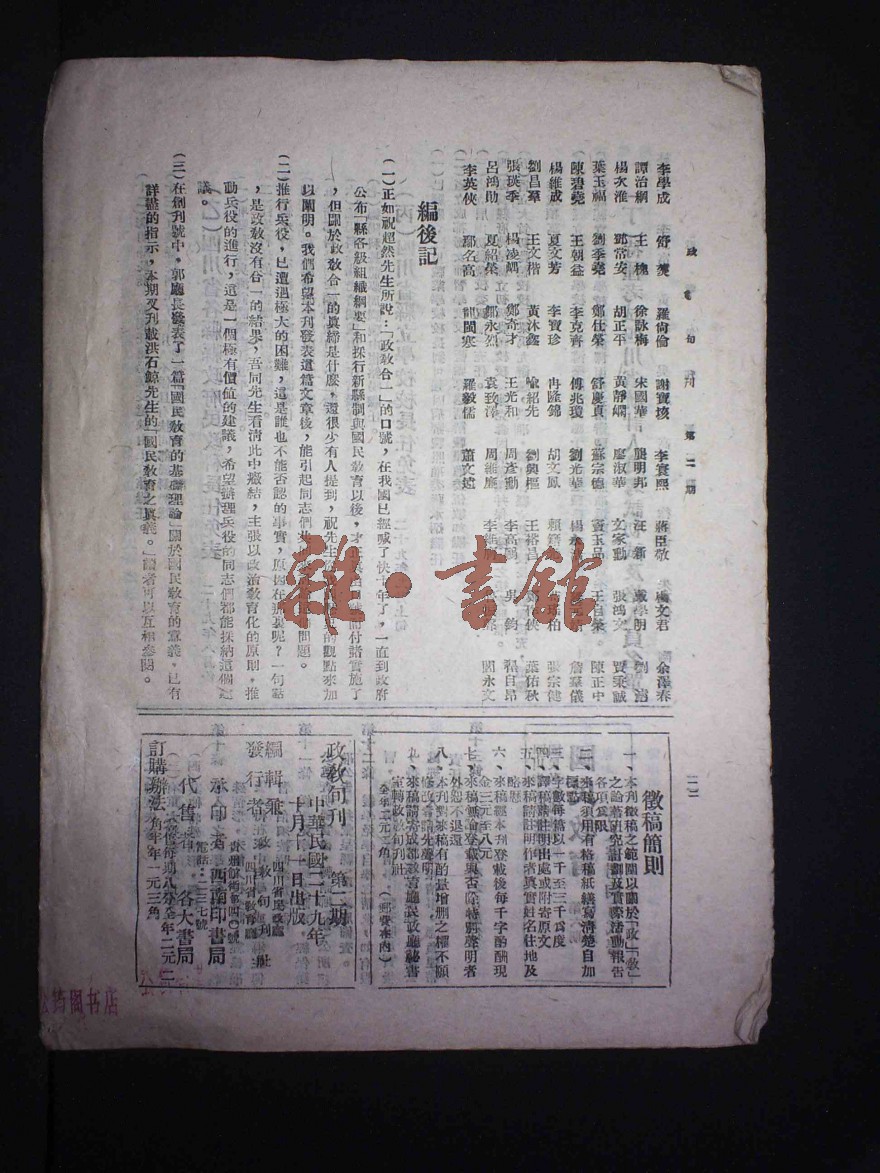 政教旬刊 第二期
李學成 舒爕 羅尚倫 謝寶核 李寰熙 蔣臣敬 楊文君 余澤春
譚治綱 王槐 徐詠梅 宋國華 龔明邦 汪新 嚴學明 劉湑
楊次淮 鄧常安 胡正平 黃靜嫻 廖淑華 文家勳 張鴻文 賈秉誠
葉玉福 劉季堯 鄭仕榮 舒慶貞 蘇宗德 竇玉品 王自榮 陳正中
陳碧堯 王朝益 李克齊 傅兆瓊 劉光華 詹華儀
楊維成 夏文芳 李寶珍 冉隆錦 胡文鳳 張宗健
劉昌羣 王文楷 黃沐鑫 喻紹先 劉興樞 王裕昌 葉佑秋
張瑛季 楊凌鷗 鄭奇才 王光和 周彥勳 李高 吳鈞 程自昂
呂鴻勛 夏紹榮 鄒永烈 袁致澤 周維應 閻永文
李英俠 鄒名高 閻閩寒 羅毅儒 蕭文斌
編後記
(一)正如祝超然先生所說:「政教合一」的口號,在我國已經喊了快十年了,一直到政府
公布「縣各級組織綱要」和採行新縣制與國民教育以後,才 付諸實施了
,但關於政教合一的眞締是什麽,還很少有人提到,祝先生 的觀點來加
以闡明。我們希望本刊發表這篇文章後,能引起同志們 問題。
(二)推行兵役,已遭遇極大的困難,這是誰也不能否認的事實,原因在那裏呢?一句話
,是政教沒有合一的結果,吾同先生看清此中癥結,主張以政治教育化的原則,推
動兵役的進行,這是一個極有價値的建議,希望辦理兵役的同志們都能採納這個建
議。
(三)在創刊號中,郭廳長發表了一篇「國民教育的基礎理論」關於國民教育的意義,已有
詳盡的指示,本期又刊載洪石鯨先生的「國民教育之眞義。」讀者可以互相參閱。
徵稿簡則
一、本刊徵稿之範圍以關於「政」「教」
之論著研究計劃及實際活動報告
各項爲限
二、來稿須用有格稿紙繕寫清楚自加
標點
三、字數每篇以一千至三千爲度
四、譯稿請註明出處或附寄原文
五、來稿請註明作者眞實姓名住地及
略歷
六、來稿經本刊登載後每千字酌酬現
金三元至八元
七、來稿無論登載與否除特別聲明者
外恕不退還
八、本刊對來稿有酌量增刪之權不願
修改者請先聲明
九、來稿請寄成都教育廳民政廳秘書
室轉政教旬刊社
政教旬刊 第二期
中華民國二十九年
十月十一日出版
編輯兼
發行者 政教旬刊社
四川省民政廳
四川省教育廳
承印者 西南印書局
電話:二三七號
代售者 各大書局
訂購辦法 零售每期八分全年二元二
角半年一元三角
全年二元二角(郵費在內)
公韵图书店
雜·書館